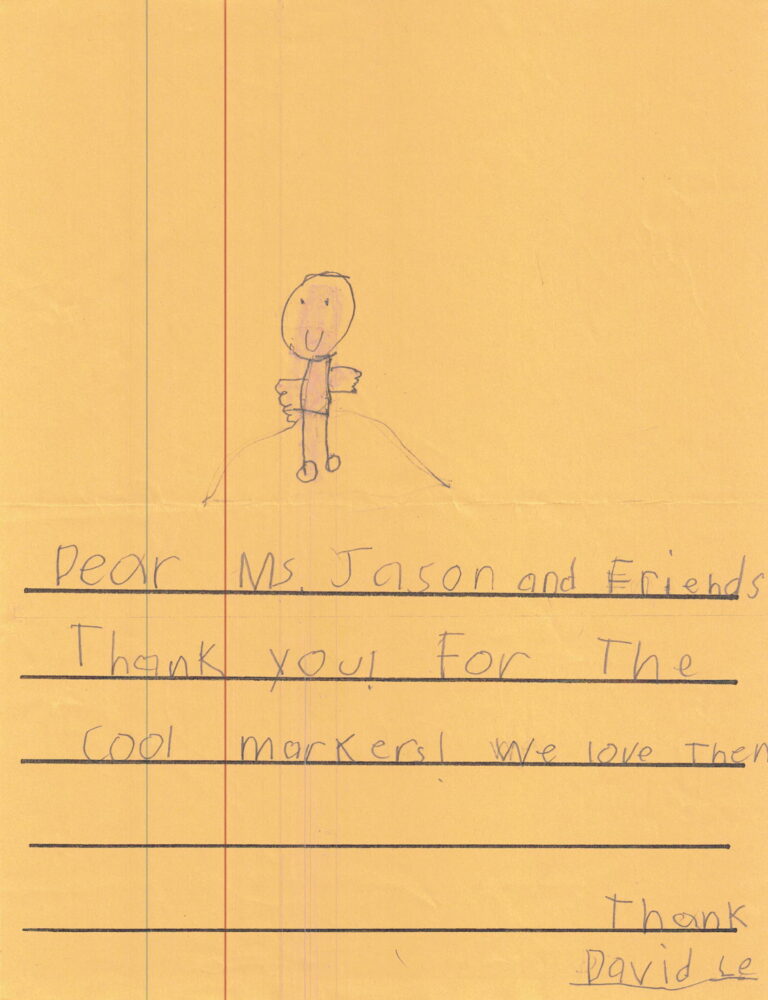 Dear Ms. Jason and Friends
Thank you! For The
Cool markers! We love Them
Thank
David Le